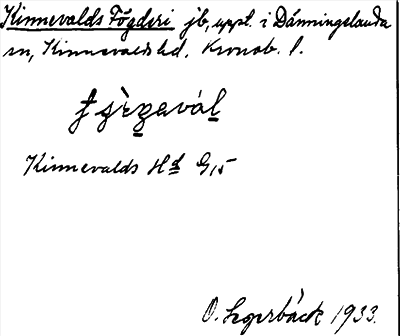 Kinnevalds Fögderi jb, uppt. i Dänningelanda
sn, Kinnevalds hd. Kronob. l.
Kinnevalds Hd G, 5
O. 1933.